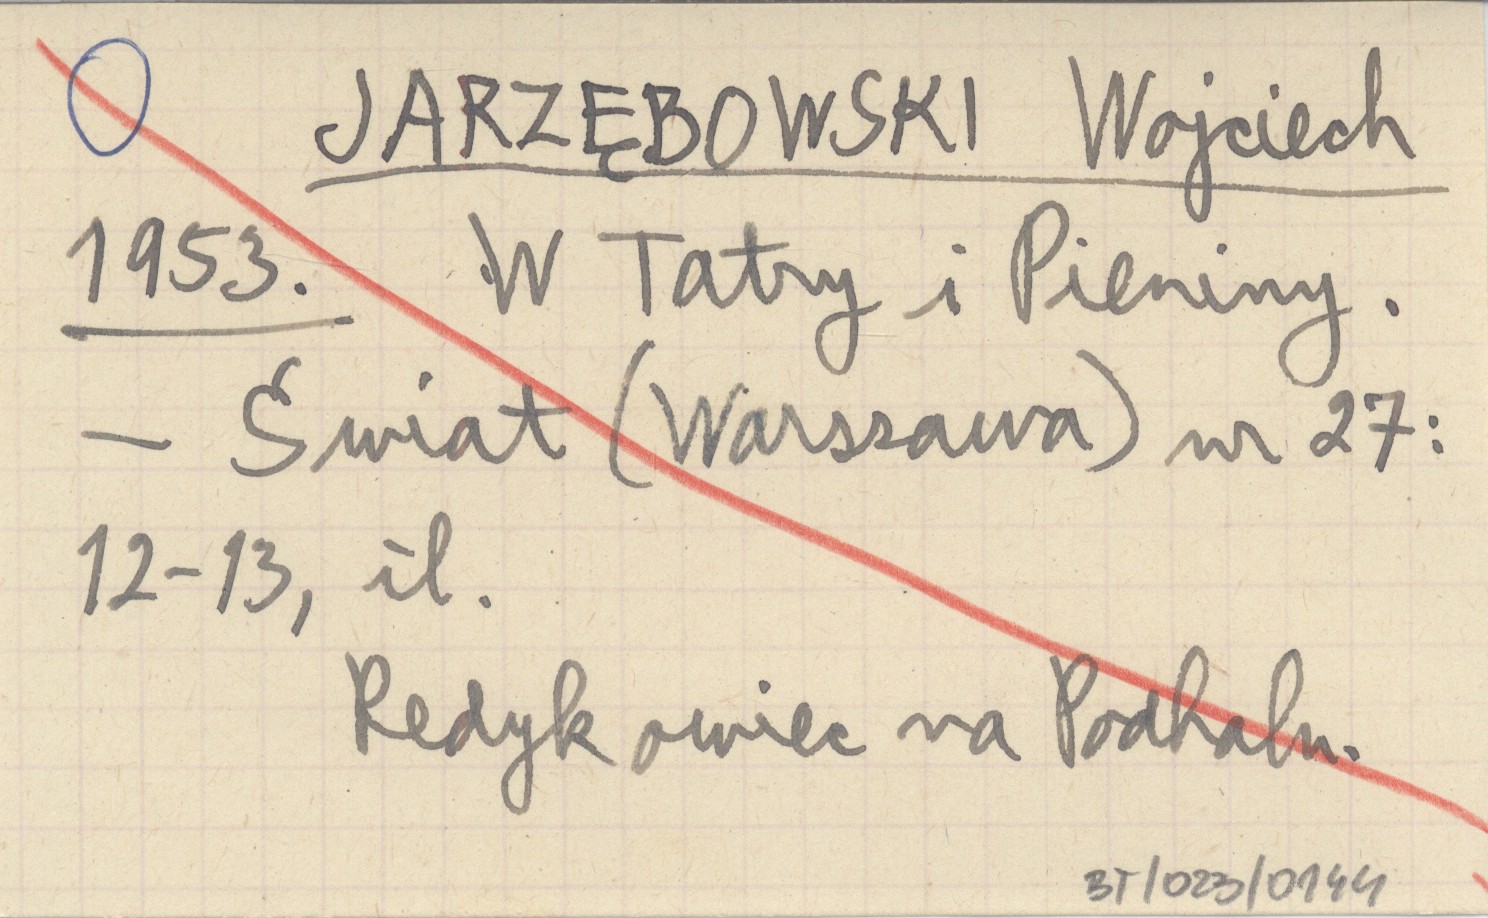 JARZĘBOWSKI Wojciech
1953. W Tatry i Pieniny.
— Świat (Warszawa) nr 27:
12-13, il.
Redyk owiec na Podhalu.
BT/023/0144